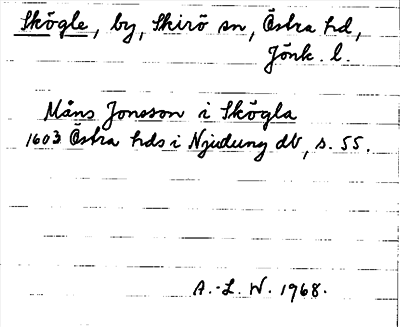 Skögle, by, Skirö sn, Östra hd,
Jönk. l.
Måns Jonsson i Skögla
1603 Östra hds i Njudung db, s. 55.
A.-L. W. 1968.